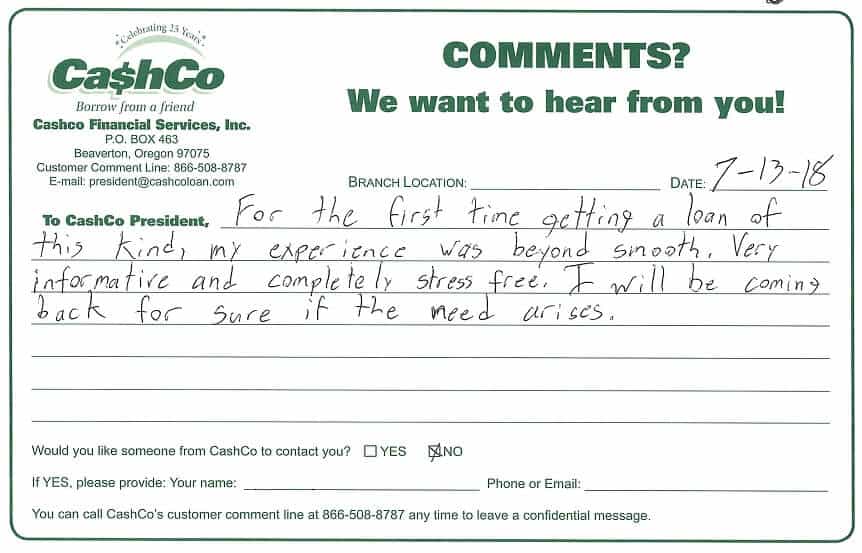 Celebrating 25 Years
Ca$hCo
Borrow from a friend
Cashco Financial Services, Inc.
P.O. BOX 463
Beaverton, Oregon 97075
Customer Comment Line: 866-508-8787
E-mail: president@cashcoloan.com
COMMENTS?
We want to hear from you!
BRANCH LOCATION: DATE: 7-13-18
To CashCo President, For the first time getting a loan of
this kind, my experience was beyond smooth. Very
informative and completely stress free. I will be coming
back for sure if the need arises.
Would you like someone from CashCo to contact you? ☐ YES ☒ NO
If YES, please provide: Your name: Phone or Email:
You can call CashCo's customer comment line at 866-508-8787 any time to leave a confidential message.